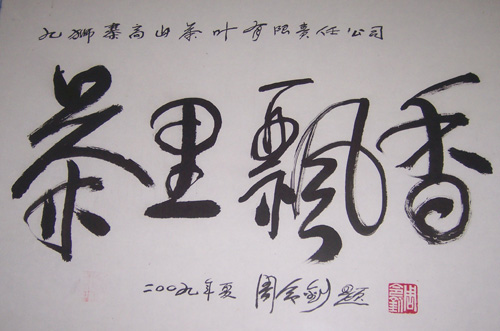 九狮寨高山茶叶有限责任公司
茶里飘香
二〇〇九年夏 周令钊题